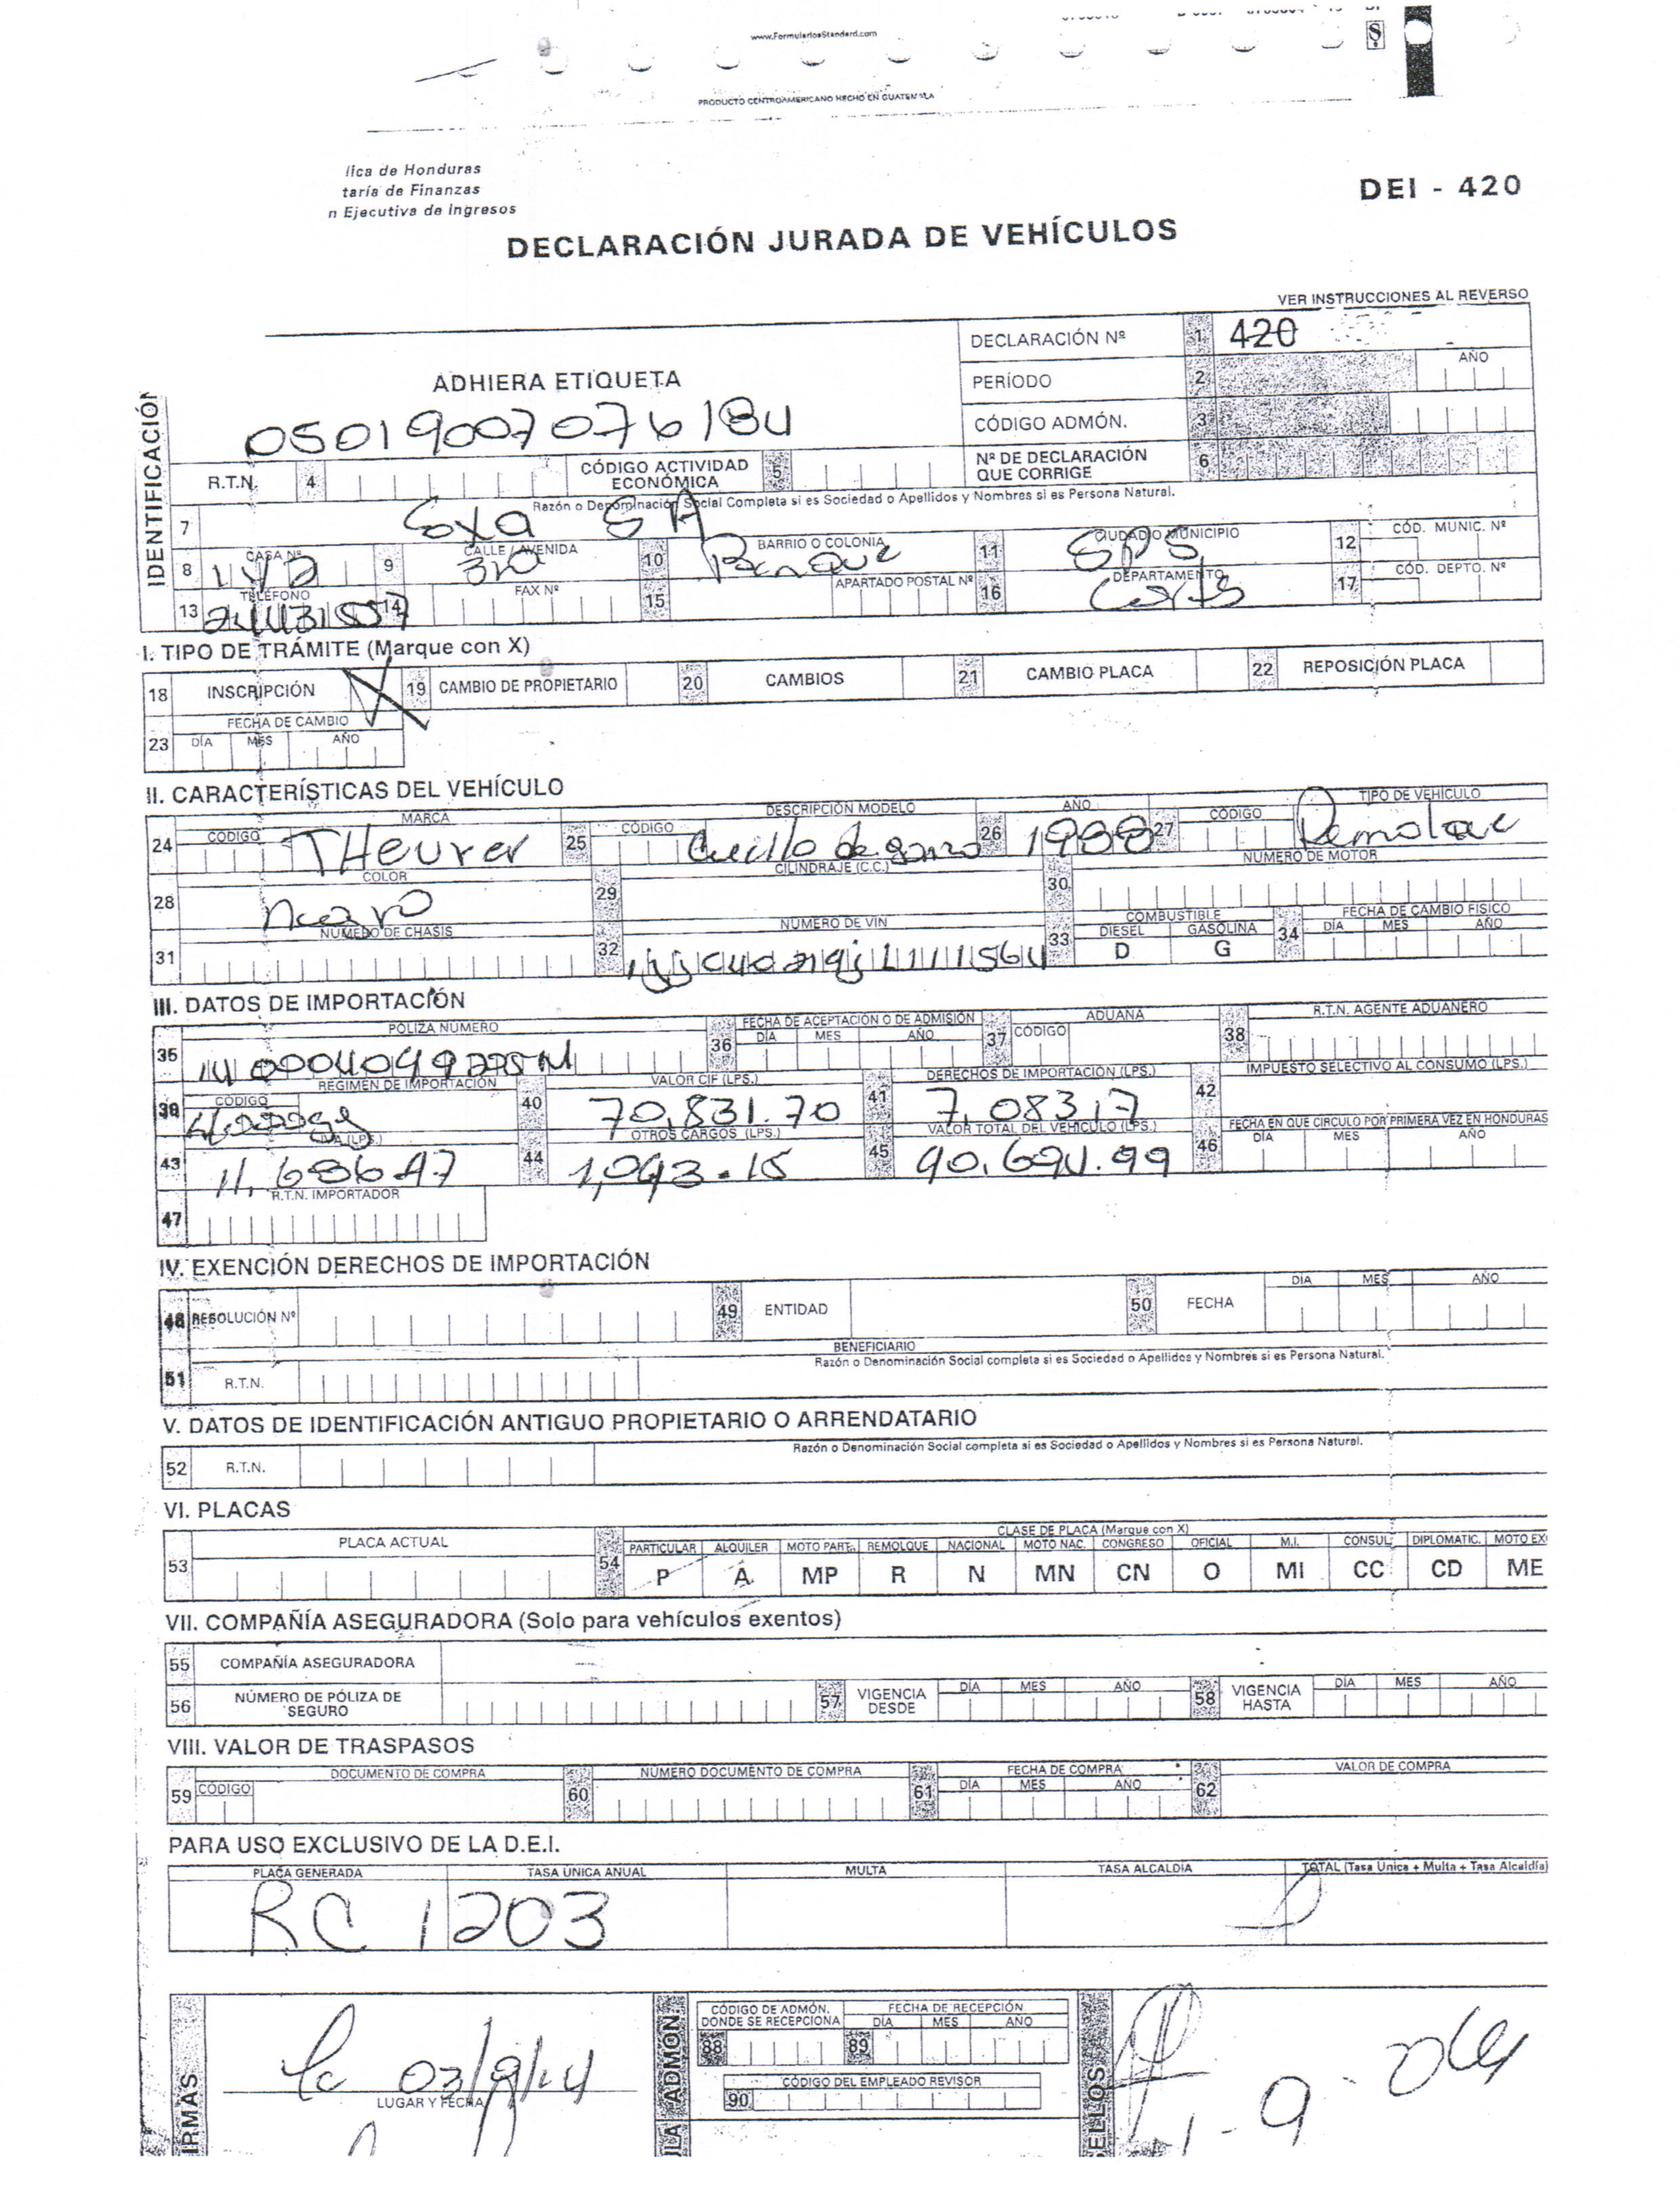 www.FormulariosStandard.com
PRODUCTO CENTROAMERICANO HECHO EN GUATEMALA
lica de Honduras
taría de Finanzas
n Ejecutiva de Ingresos
DEI - 420
DECLARACIÓN JURADA DE VEHÍCULOS
VER INSTRUCCIONES AL REVERSO
IDENTIFICACIÓN
ADHIERA ETIQUETA
DECLARACIÓN Nº 1 420
PERÍODO 2 AÑO
CÓDIGO ADMÓN. 3
05019007076184
R.T.N. 4 CÓDIGO ACTIVIDAD ECONÓMICA 5 Nº DE DECLARACIÓN QUE CORRIGE 6
7 Razón o Denominación Social Completa si es Sociedad o Apellidos y Nombres si es Persona Natural.
SA
8 CASA Nº 9 CALLE / AVENIDA 3ra 10 BARRIO O COLONIA 11 CIUDAD O MUNICIPIO SPS 12 CÓD. MUNIC. Nº
13 TELÉFONO 14 FAX Nº 15 APARTADO POSTAL Nº 16 DEPARTAMENTO Cortés 17 CÓD. DEPTO. Nº
I. TIPO DE TRÁMITE (Marque con X)
18 INSCRIPCIÓN X 19 CAMBIO DE PROPIETARIO 20 CAMBIOS 21 CAMBIO PLACA 22 REPOSICIÓN PLACA
FECHA DE CAMBIO
23 DÍA MES AÑO
II. CARACTERÍSTICAS DEL VEHÍCULO
24 CÓDIGO MARCA THeurer 25 CÓDIGO DESCRIPCIÓN MODELO Cuello de ganzo 26 AÑO 1988 27 CÓDIGO TIPO DE VEHÍCULO Remolque
28 COLOR 29 CILINDRAJE (C.C.) 30 NÚMERO DE MOTOR
31 NÚMERO DE CHASIS 32 NÚMERO DE VIN 33 COMBUSTIBLE DIESEL D GASOLINA G 34 FECHA DE CAMBIO FÍSICO DÍA MES AÑO
III. DATOS DE IMPORTACIÓN
35 PÓLIZA NÚMERO 36 FECHA DE ACEPTACIÓN O DE ADMISIÓN DÍA MES AÑO 37 ADUANA CÓDIGO 38 R.T.N. AGENTE ADUANERO
39 RÉGIMEN DE IMPORTACIÓN CÓDIGO 40 VALOR CIF (LPS.) 70,831.70 41 DERECHOS DE IMPORTACIÓN (LPS.) 7,083.17 42 IMPUESTO SELECTIVO AL CONSUMO (LPS.)
43 IVA (LPS.) 44 OTROS CARGOS (LPS.) 1,093.15 45 VALOR TOTAL DEL VEHÍCULO (LPS.) 90,694.99 46 FECHA EN QUE CIRCULO POR PRIMERA VEZ EN HONDURAS DÍA MES AÑO
47 R.T.N. IMPORTADOR
IV. EXENCIÓN DERECHOS DE IMPORTACIÓN
48 RESOLUCIÓN Nº 49 ENTIDAD 50 FECHA DÍA MES AÑO
BENEFICIARIO
51 R.T.N. Razón o Denominación Social completa si es Sociedad o Apellidos y Nombres si es Persona Natural.
V. DATOS DE IDENTIFICACIÓN ANTIGUO PROPIETARIO O ARRENDATARIO
52 R.T.N. Razón o Denominación Social completa si es Sociedad o Apellidos y Nombres si es Persona Natural.
VI. PLACAS
53 PLACA ACTUAL 54 CLASE DE PLACA (Marque con X)
PARTICULAR ALQUILER MOTO PART. REMOLQUE NACIONAL MOTO NAC. CONGRESO OFICIAL M.I. CONSUL DIPLOMATIC. MOTO EX
P A MP R N MN CN O MI CC CD ME
VII. COMPAÑÍA ASEGURADORA (Solo para vehículos exentos)
55 COMPAÑÍA ASEGURADORA
56 NÚMERO DE PÓLIZA DE SEGURO 57 VIGENCIA DESDE DÍA MES AÑO 58 VIGENCIA HASTA DÍA MES AÑO
VIII. VALOR DE TRASPASOS
59 CÓDIGO DOCUMENTO DE COMPRA 60 NÚMERO DOCUMENTO DE COMPRA 61 FECHA DE COMPRA DÍA MES AÑO 62 VALOR DE COMPRA
PARA USO EXCLUSIVO DE LA D.E.I.
PLACA GENERADA TASA ÚNICA ANUAL MULTA TASA ALCALDÍA TOTAL (Tasa Única + Multa + Tasa Alcaldía)
RC 1203
IRMAS
03/9/14
LUGAR Y FECHA
LA ADMON
CÓDIGO DE ADMÓN. DONDE SE RECEPCIONA 88 FECHA DE RECEPCIÓN 89 DÍA MES AÑO
CÓDIGO DEL EMPLEADO REVISOR
90
ELLOS